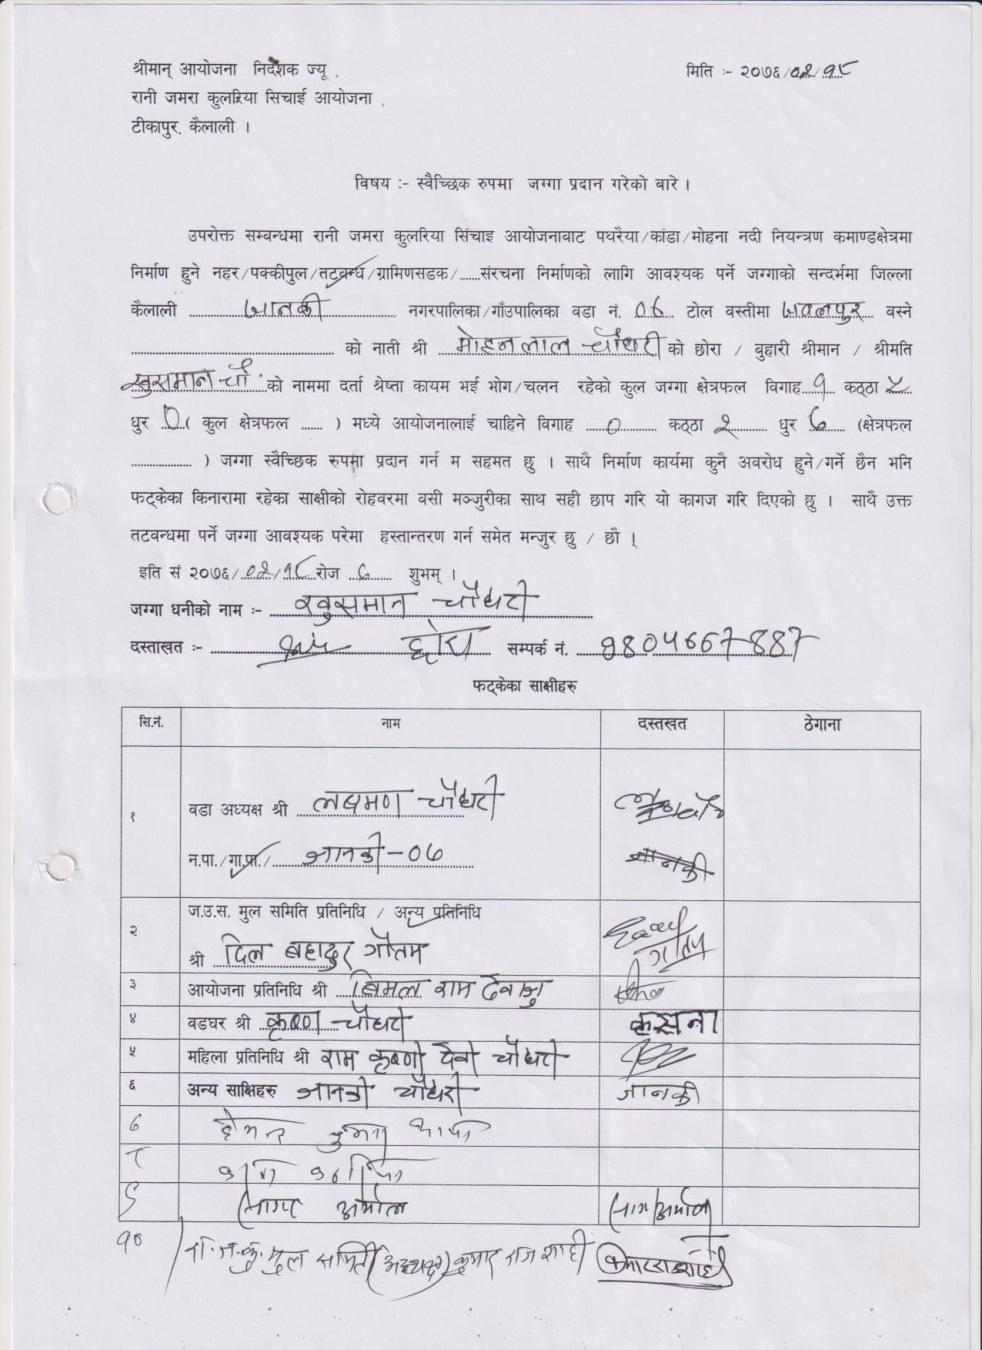 श्रीमान् आयोजना निर्देशक ज्यू ,
मिति :- २०७६/०२/१८
रानी जमरा कुलरिया सिचाई आयोजना ,
टीकापुर, कैलाली ।
विषय :- स्वैच्छिक रुपमा जग्गा प्रदान गरेको बारे ।
उपरोक्त सम्बन्धमा रानी जमरा कुलरिया सिंचाइ आयोजनावाट पथरैया/कांडा/मोहना नदी नियन्त्रण कमाण्डक्षेत्रमा
निर्माण हुने नहर/पक्कीपुल/तटवन्ध/ग्रामिणसडक/......संरचना निर्माणको लागि आवश्यक पर्ने जग्गाको सन्दर्भमा जिल्ला
कैलाली जानकी नगरपालिका/गाँउपालिका वडा नं. ०६ टोल वस्तीमा जवलपुर वस्ने
........................................ को नाती श्री मोहनलाल चौधरी को छोरा / वुहारी श्रीमान / श्रीमति
खुसमान चौ. को नाममा दर्ता श्रेष्ता कायम भई भोग/चलन रहेको कुल जग्गा क्षेत्रफल विगाह १ कठ्ठा ५
धुर 0 ( कुल क्षेत्रफल ...... ) मध्ये आयोजनालाई चाहिने विगाह ० कठ्ठा २ धुर ६ (क्षेत्रफल
.................. ) जग्गा स्वैच्छिक रुपमा प्रदान गर्न म सहमत छु । साथै निर्माण कार्यमा कुनै अवरोध हुने/गर्ने छैन भनि
फट्केका किनारामा रहेका साक्षीको रोहवरमा वसी मञ्जुरीका साथ सही छाप गरि यो कागज गरि दिएको छु । साथै उक्त
तटवन्धमा पर्ने जग्गा आवश्यक परेमा हस्तान्तरण गर्न समेत मन्जुर छु / छौ ।
इति सं २०७६/०२/१८ रोज ६ शुभम् ।
जग्गा धनीको नाम :- खुसमान चौधरी
दस्ताखत :- छोरा सम्पर्क नं. 9804667887
फट्केका साक्षीहरु
सि.नं. नाम दस्तखत ठेगाना
१ वडा अध्यक्ष श्री लक्ष्मण चौधरी
न.पा./गा.पा./ जानकी-०६ जानकी
२ ज.उ.स. मुल समिति प्रतिनिधि / अन्य प्रतिनिधि
श्री दिल बहादुर गौतम
३ आयोजना प्रतिनिधि श्री बिमल राम
४ वडघर श्री कृष्ण चौधरी कृसना
५ महिला प्रतिनिधि श्री राम कृष्णी देवी चौधरी
६ अन्य साक्षिहरु जानकी चौधरी जानकी
७
८
९
१० रा.ज.कु. मुल समिती (अध्यक्ष) कुमार राज शाही